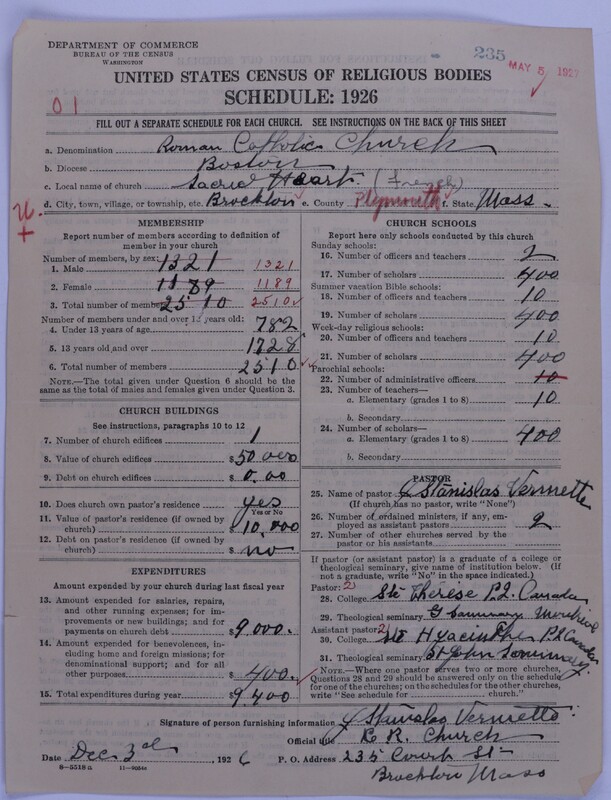 DEPARTMENT OF COMMERCE
BUREAU OF THE CENSUS
WASHINGTON
235
MAY 5 1927
UNITED STATES CENSUS OF RELIGIOUS BODIES
SCHEDULE: 1926
01
FILL OUT A SEPARATE SCHEDULE FOR EACH CHURCH. SEE INSTRUCTIONS ON THE BACK OF THIS SHEET
a. Denomination Roman Catholic Church
b. Diocese Boston
c. Local name of church Sacred Heart (French)
d. City, town, village, or township, etc. Brockton e. County Plymouth f. State Mass.
MEMBERSHIP
Report number of members according to definition of
member in your church
Number of members, by sex:
1. Male 1321 1321
2. Female 1189 1189
3. Total number of members 2510 2510
Number of members under and over 13 years old:
4. Under 13 years of age 782
5. 13 years old and over 1728
6. Total number of members 2510
NOTE.—The total given under Question 6 should be
the same as the total of males and females given under Question 3.
CHURCH BUILDINGS
See instructions, paragraphs 10 to 12
7. Number of church edifices 1
8. Value of church edifices $50.000
9. Debt on church edifices $0.00
10. Does church own pastor's residence? yes
Yes or No
11. Value of pastor's residence (if owned by
church) $10,000
12. Debt on pastor's residence (if owned by
church) $ no
EXPENDITURES
Amount expended by your church during last fiscal year
13. Amount expended for salaries, repairs,
and other running expenses; for im-
provements or new buildings; and for
payments on church debt $9,000.
14. Amount expended for benevolences, in-
cluding home and foreign missions; for
denominational support; and for all
other purposes $400.
15. Total expenditures during year $9400
CHURCH SCHOOLS
Report here only schools conducted by this church
Sunday schools:
16. Number of officers and teachers 2
17. Number of scholars 400
Summer vacation Bible schools:
18. Number of officers and teachers 10
19. Number of scholars 400
Week-day religious schools:
20. Number of officers and teachers 10
21. Number of scholars 400
Parochial schools:
22. Number of administrative officers 10
23. Number of teachers—
a. Elementary (grades 1 to 8) 10
b. Secondary
24. Number of scholars—
a. Elementary (grades 1 to 8) 400
b. Secondary
PASTOR
25. Name of pastor Stanislas Vermette
(If church has no pastor, write "None")
26. Number of ordained ministers, if any, em-
ployed as assistant pastors 2
27. Number of other churches served by the
pastor or his assistants
If pastor (or assistant pastor) is a graduate of a college or
theological seminary, give name of institution below. (If
not a graduate, write "No" in the space indicated.)
Pastor: 2
28. College Ste Thérèse P.Q. Canada
29. Theological seminary G Seminary Montreal
Assistant pastor: 2
30. College St Hyacinthe P.Q Canada
31. Theological seminary St John Seminary
NOTE.—Where one pastor serves two or more churches,
Questions 28 and 29 should be answered only on the schedule
for one of the churches; on the schedules for the other churches,
write "See schedule for church."
Signature of person furnishing information Stanislas Vermette
Official title R. Church
Date Dec 3d, 1926 P. O. Address 235 Court St
8—5518a 11—9054a
Brockton Mass